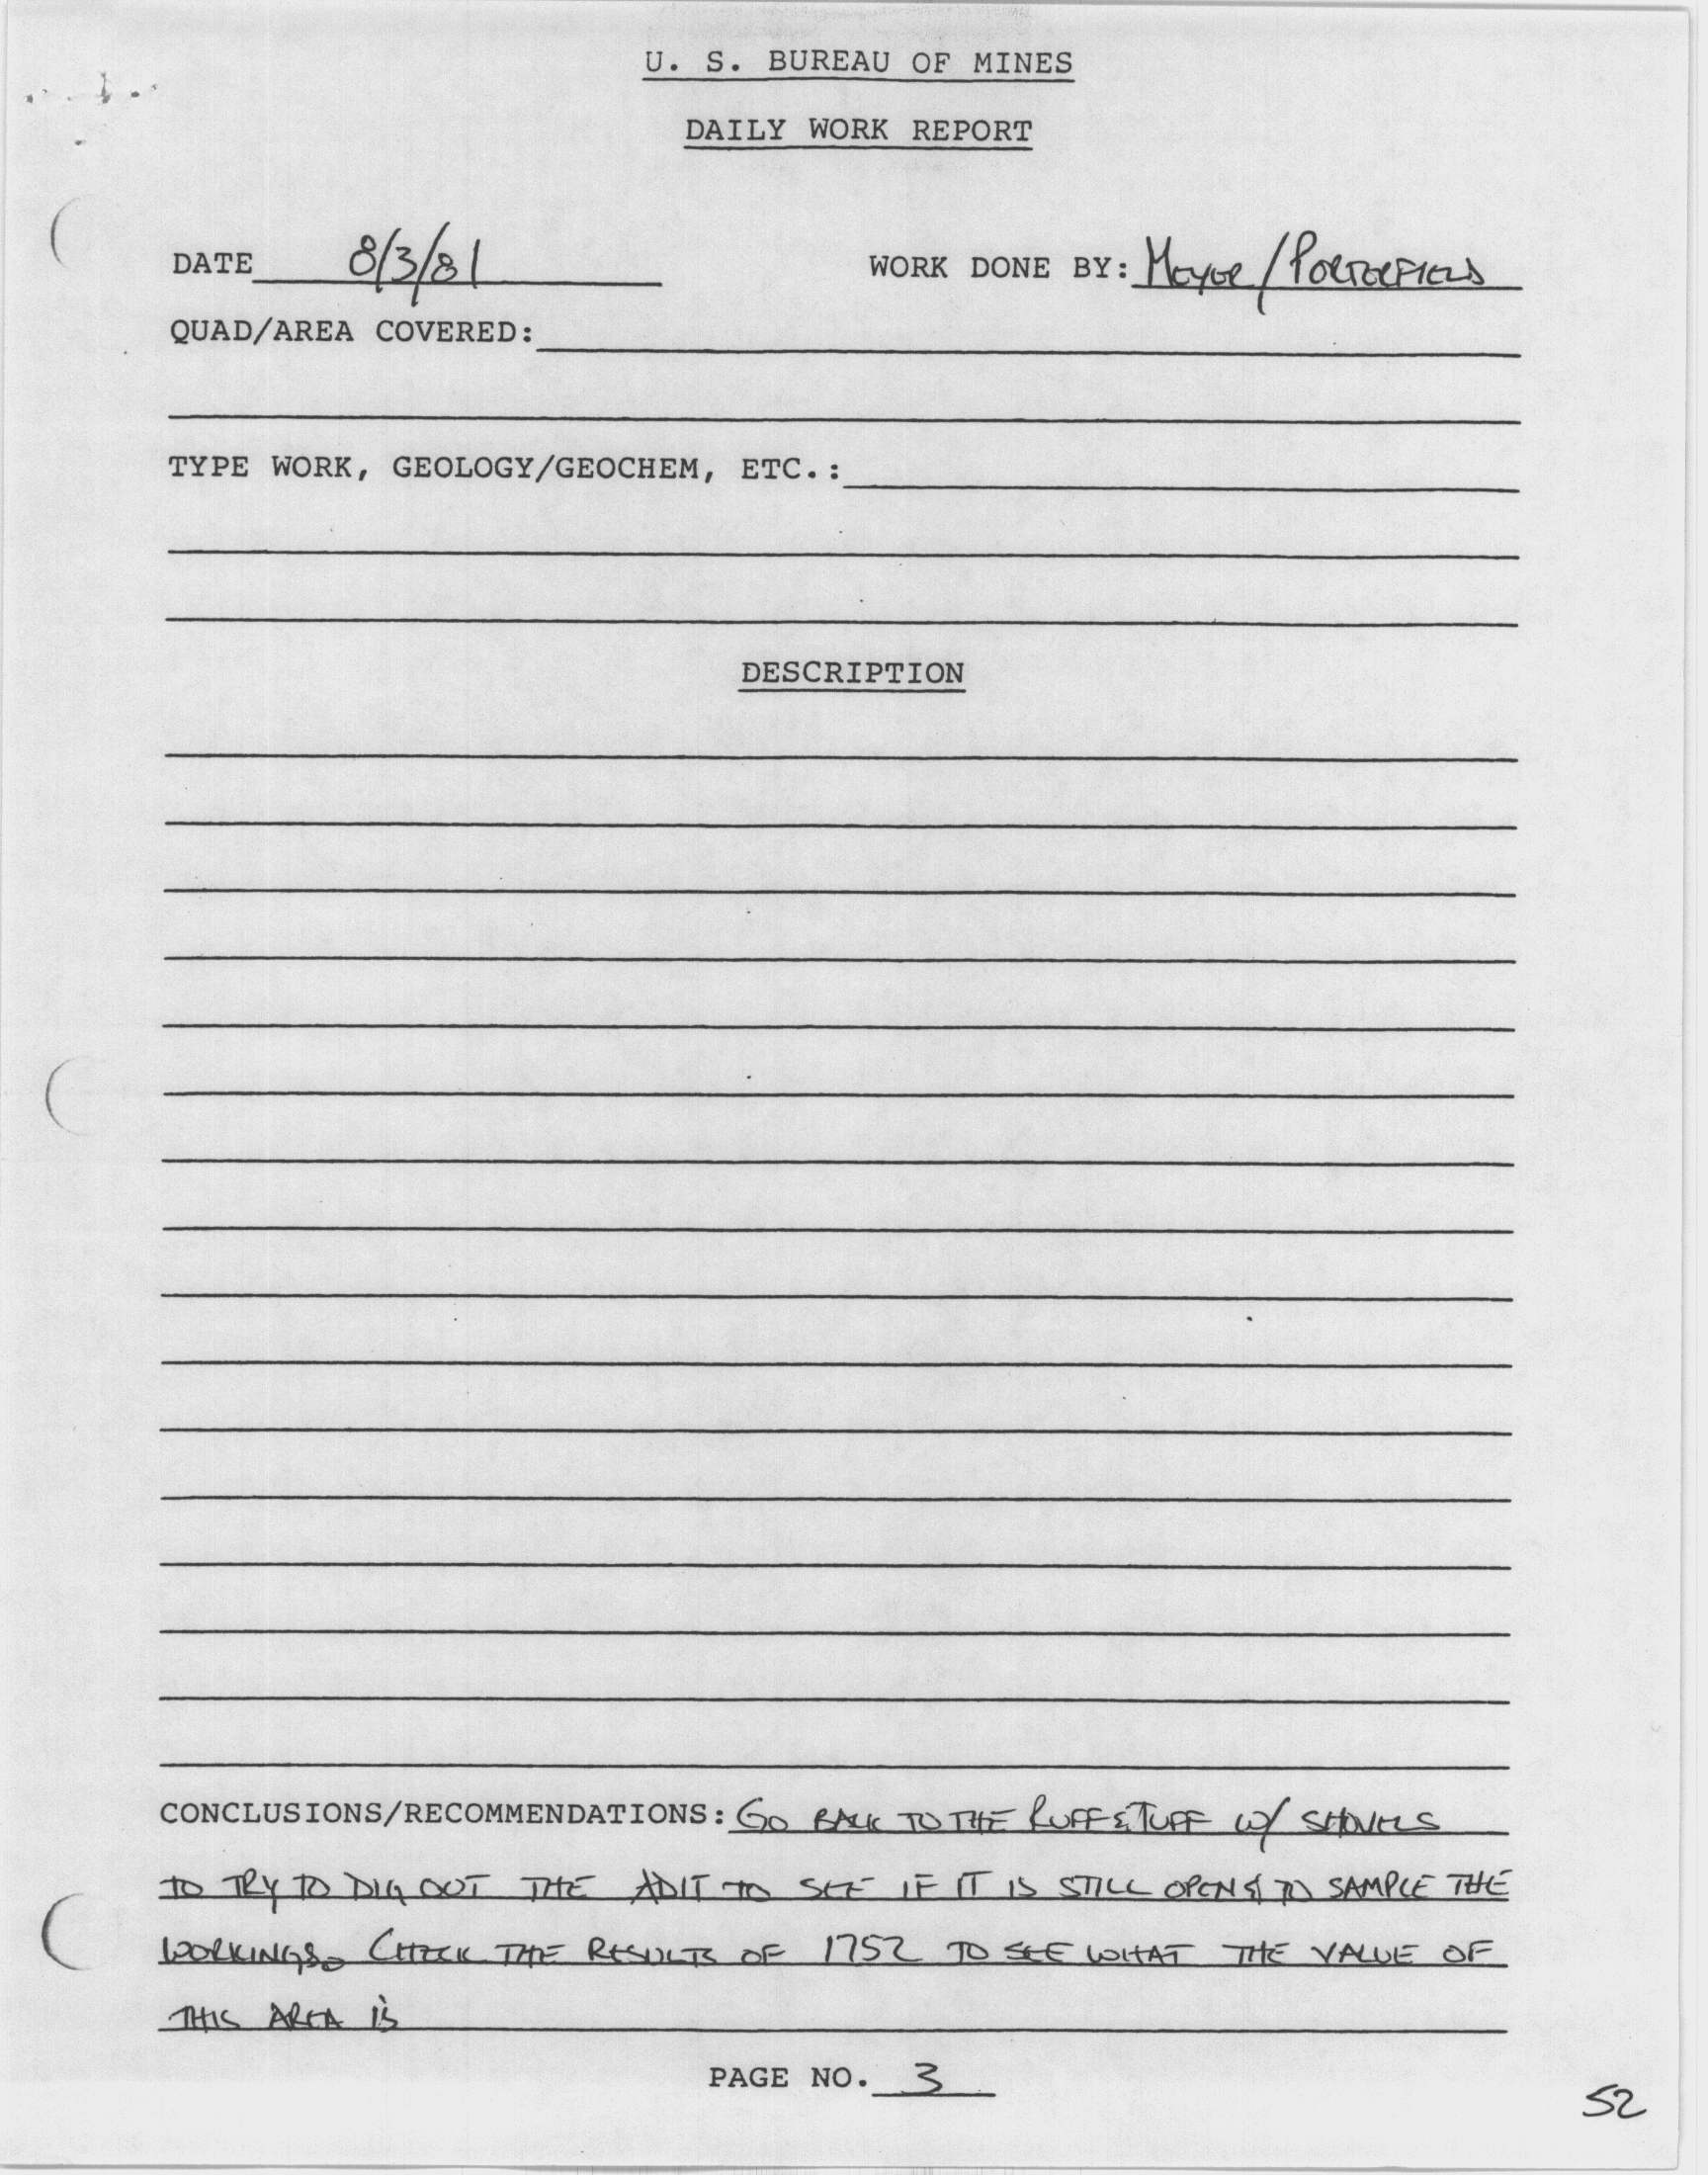 U. S. BUREAU OF MINES
DAILY WORK REPORT
DATE 8/3/81 WORK DONE BY: MEYER/PORTERFIELD
QUAD/AREA COVERED:
TYPE WORK, GEOLOGY/GEOCHEM, ETC.:
DESCRIPTION
CONCLUSIONS/RECOMMENDATIONS: GO BACK TO THE RUFF & TUFF W/ SHOVELS
TO TRY TO DIG OUT THE ADIT TO SEE IF IT IS STILL OPEN & TO SAMPLE THE
WORKINGS. CHECK THE RESULTS OF 1752 TO SEE WHAT THE VALUE OF
THIS AREA IS
PAGE NO. 3
52